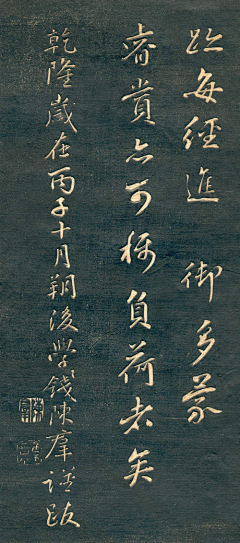 趾每經進 御多蒙
睿賞亦可稱負荷者矣
乾隆歲在丙子十月朔後學錢陳羣謹跋